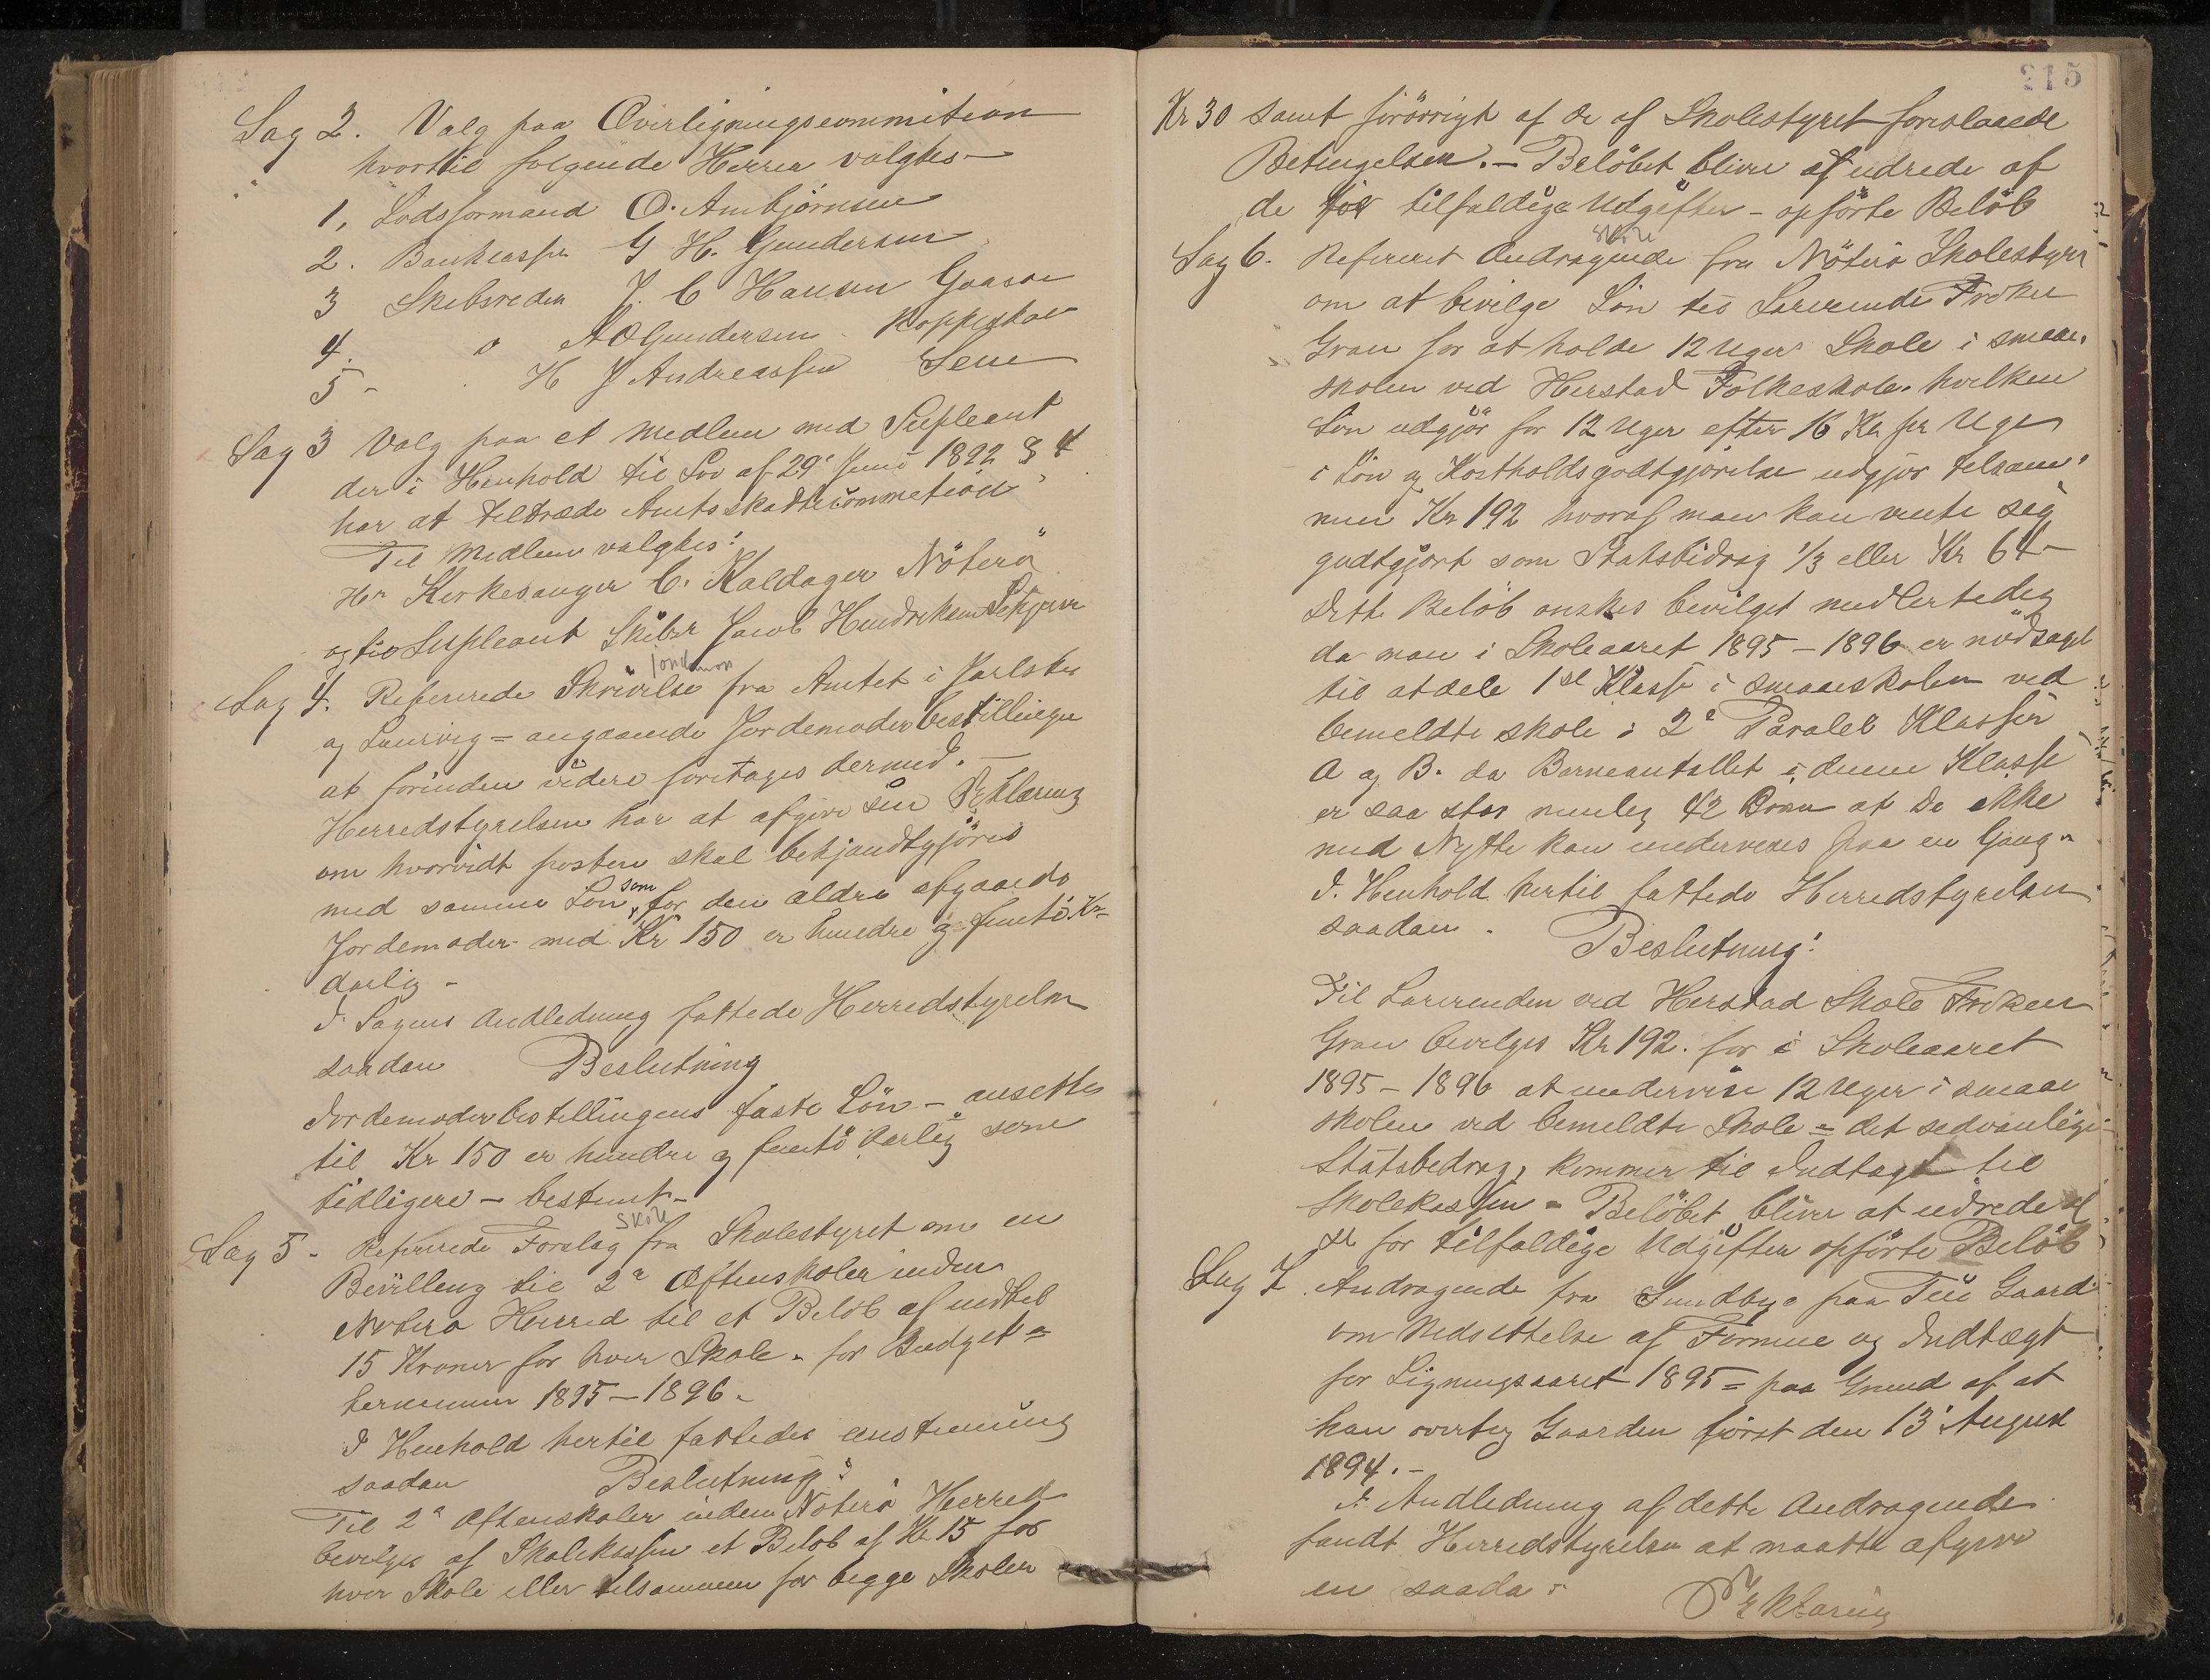 Sag 2. Valg paa Overligningscommition
hvortil følgende Herrer valgtes –
1, Lodsformand O. Ambjörnsen
2. Bankkasser G H. Gundersen
3 Skibsreder J. C Hansen Gaasøe
4. " A O Gundersen
5 – H J Andreassen Sem
Sag 3 Valg paa et medlem med Supleant
der i Henhold til Lov af 29' Juni 1892 § 4
har at tiltræde Amtsskattecommetion
Til Medlem valgtes:
Hr Kirkesanger C. Kaldager Nöterö
og til Supleant Skibsr Jacob Hendriksen
jordmor
Sag 4. Refererede Skrivelse fra Amtet i Jarlsbe
og Laurvig = angaaende Jordemoderbestillingen
at förinden videre foretages dermed. –
Herredstyrelsen har at afgive sin Erklæring
om hvorvidt posten skal bekjendtgjöres
med samme Lön som for den ældre afgaaede
Jordemoder med Kr 150 er hundre og femti Kr
aarlig –
I Sagens Andledning fattede Herredstyrelsen
saadan Beslutning
Jordemoderbestillingens faste Lön – ansettes
til Kr 150 er hundre og femti aarlig som
tidligere – bestemt –
Skole
Sag 5 – Refererede Forslag fra Skolestyret om en
Bevilling til 2 Aftenskoler inden
Nöterö Herred til et Belöb af indtil
15 Kroner for hver Skole – for Budget =
terminen 1895 – 1896 –
I Henhold hertil fattedes enstemmig
saadan Beslutning:
Til 2 Aftenskoler inden Nöterö Herred
bevilges af Skolekassen et Belöb af Kr 15 for
hver Skole eller tilsammen for begge Skoler
215
Kr 30 samt forövrigt af de af Skolestyret foreslaaede
Betingelser. – Belöbet bliver at udrede af
de for tilfeldige Udgifter – opförte Belöb
skole
Sag 6. Referert Andragende fra Nöterö Skolestyre
om at bevilge Lön til Lærerinde Frøken
Gran for at holde 12 Uger Skole i smaa-
skolen ved Herstad Folkeskole. hvilken
Lön udgjör for 12 Uger efter 16 Kr pr Uge
i Lön og Kostholdsgodtgjörelse udgjör tilsam-
men Kr 192 hvoraf man kan vente sig
godtgjort som Statsbidrag 1/3 eller Kr 64 –
Dette Belöb ønskes bevilget midlertedig
da man i Skoleaaret 1895 – 1896 er nödsaget
til at dele 1ste Klasse i smaaskolen ved
bemeldte skole i 2 Paralel Klasser
A og B. da Barneantallet i denne Klasse
er saa stor nemlig 42 Börn at De ikke
med Nytte kan undervises paa en Gang –
I Henhold hertil fattede Herredstyrelsen
saadan .
Beslutning:
Til Lærerinden ved Herstad Skole Frøken
Gran bevilges Kr 192. for i Skoleaaret
1895 – 1896 at undervise 12 Uger i smaa
skolen ved bemeldte Skole = det sedvanlige
Statsbedrag, kommer til Indtægt til
Skolekassen – Belöbet bliver at udrede af
de for tilfeldige Udgifter opförte Belöb
Sag 7. Andragende fra Sundbye paa Tei Gaard
om Nedsettelse af Formue og Indtægt
for Ligningsaaret 1895 = paa Grund af at
han overtog Gaarden först den 13' August
1894. –
I Andledning af dette Andragende
fandt Herredstyrelsen at maatte afgive
en saadan
Erklæring